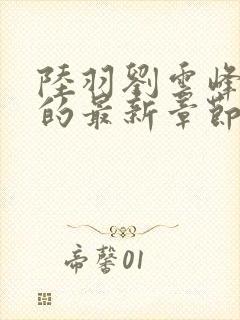 陸羽劉雲峰
的最新章節
帝馨01